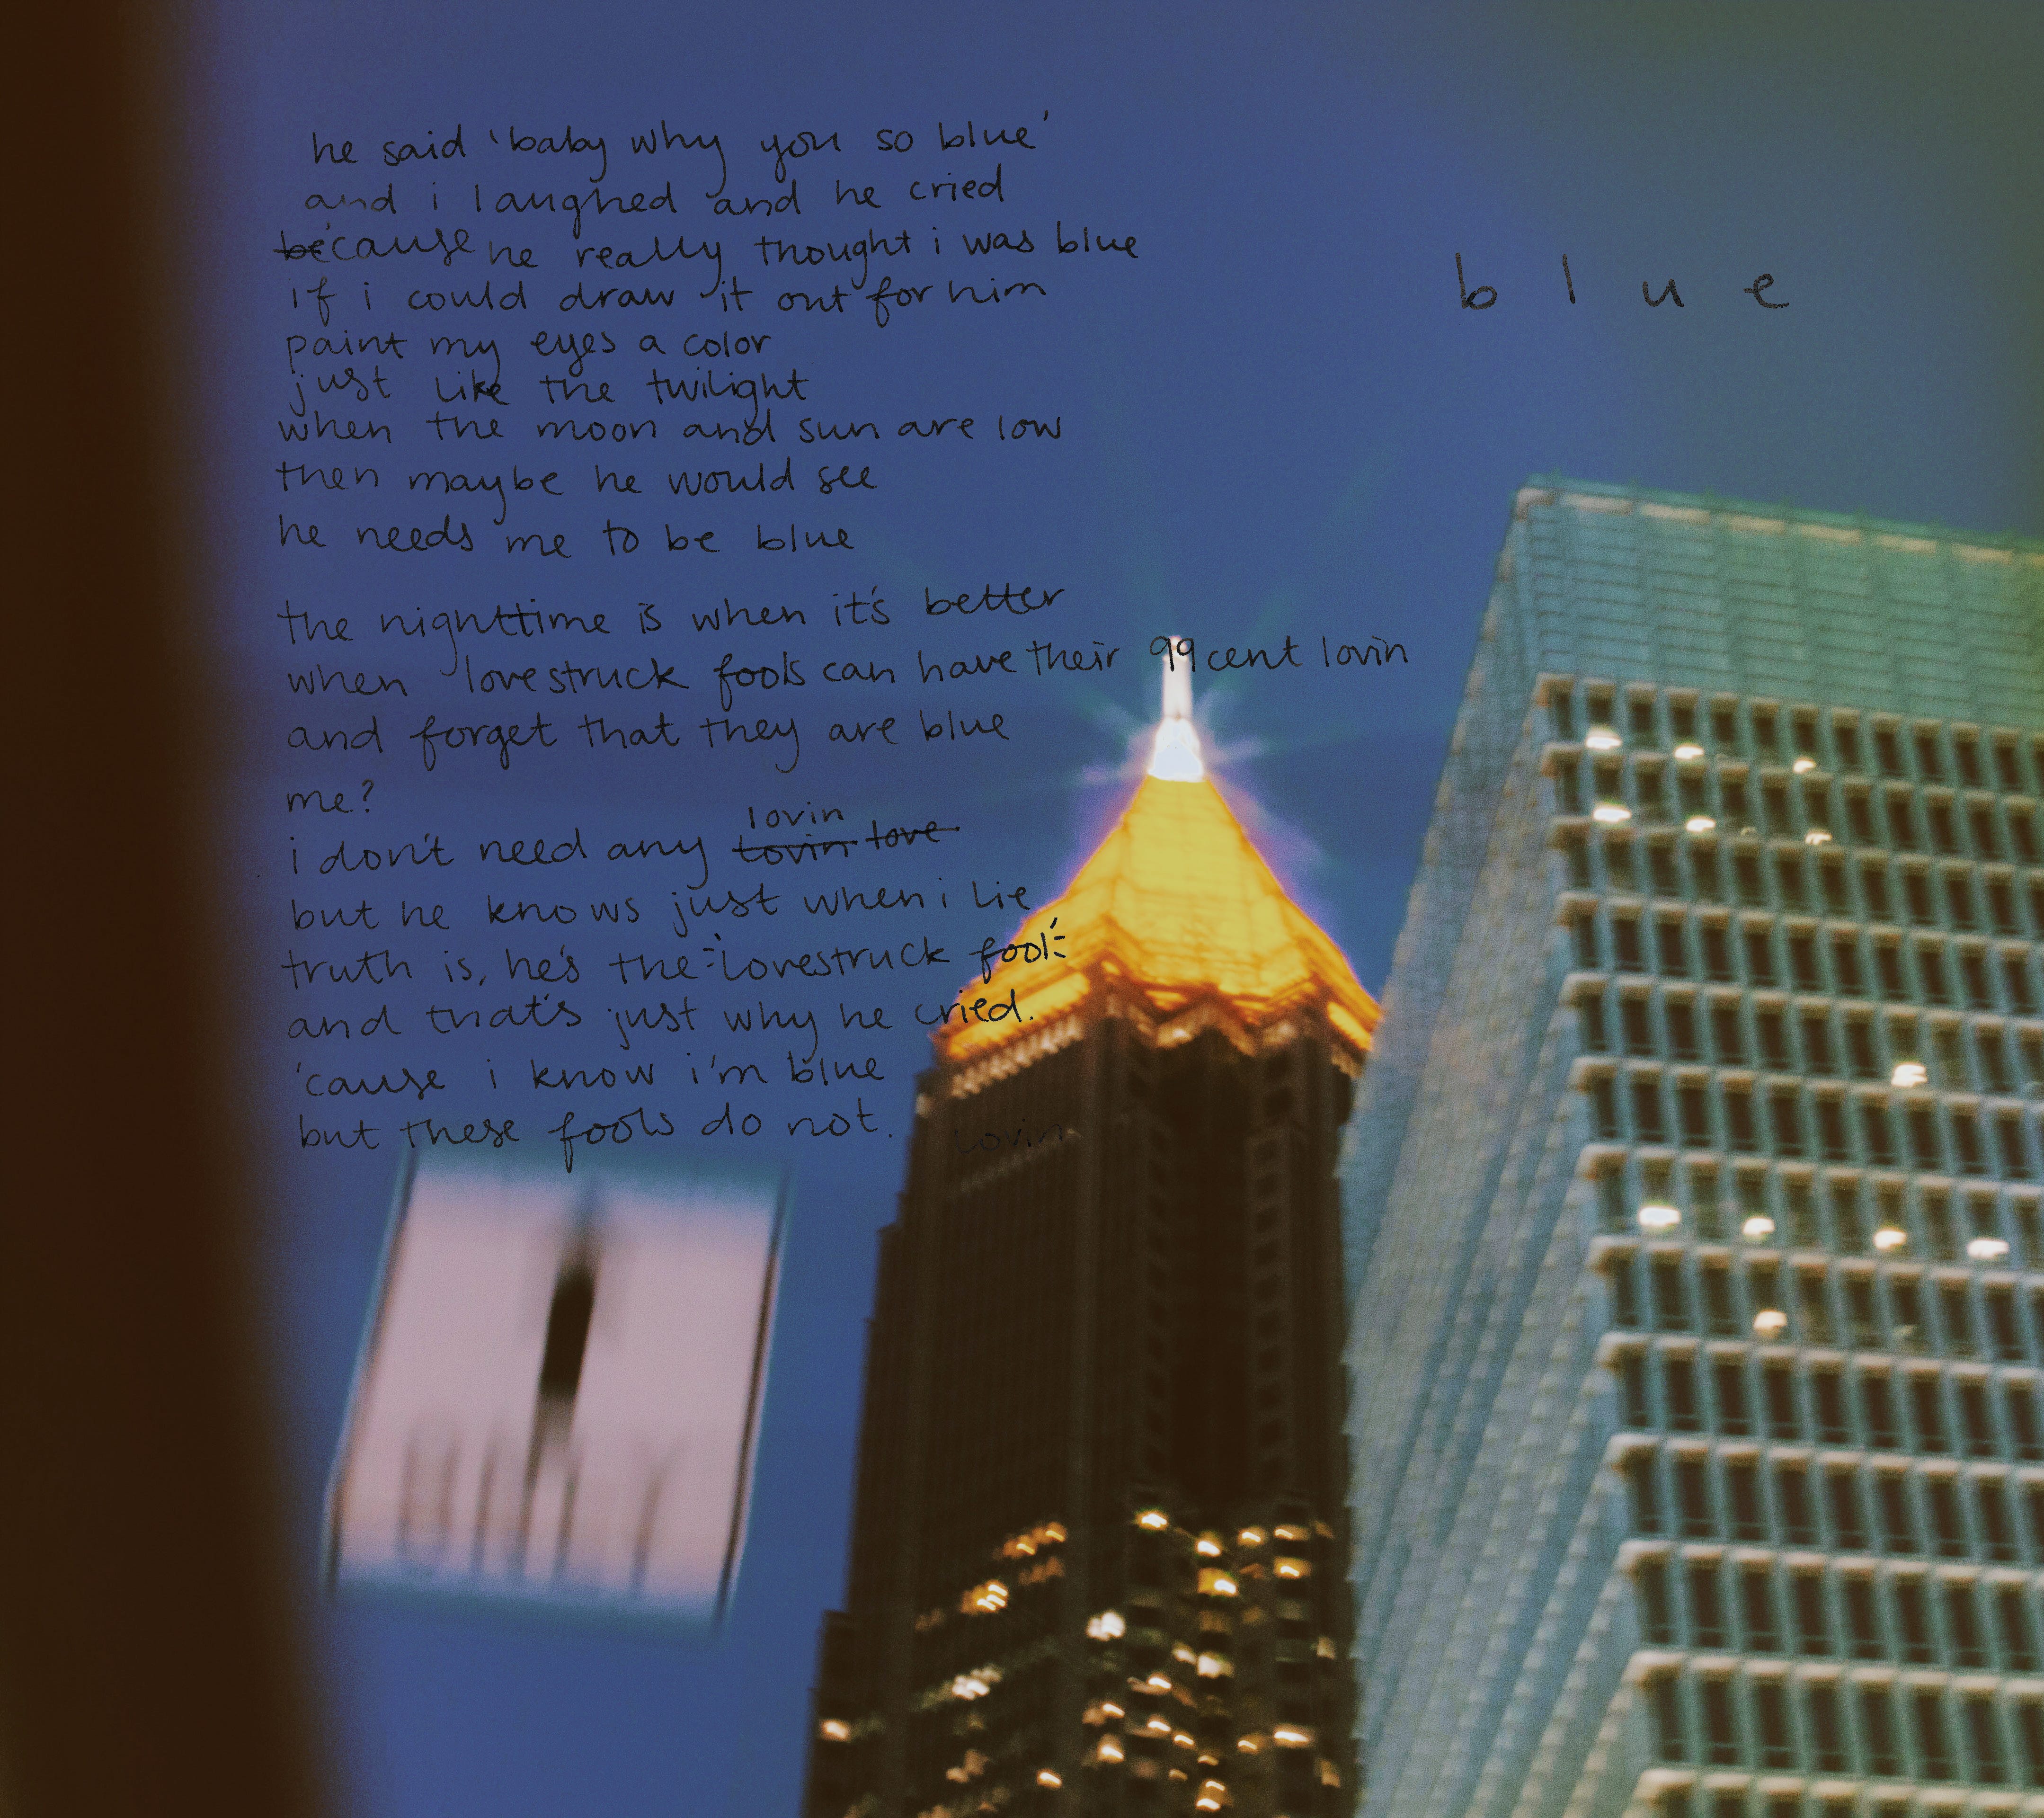 he said 'baby why you so blue'
and i laughed and he cried
be'cause he really thought i was blue
if i could draw it out for him
paint my eyes a color
just like the twilight
when the moon and sun are low
then maybe he would see
he needs me to be blue
the nighttime is when it's better
when lovestruck fools can have their 99 cent lovin
and forget that they are blue
me?
lovin
i don't need any lovin love
but he knows just when i lie
truth is, he's the 'lovestruck fool'
and that's just why he cried.
'cause i know i'm blue
but these fools do not. lovin
b l u e